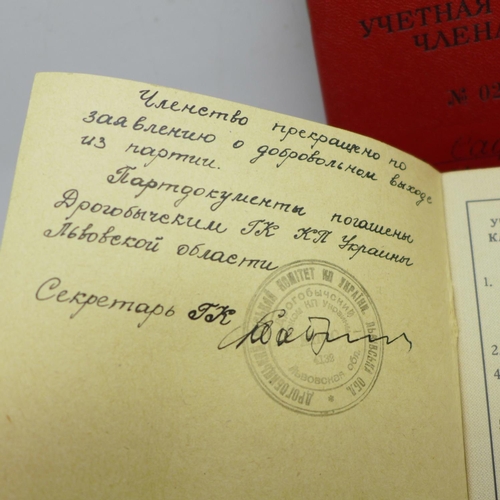 УЧЕТНАЯ
ЧЛЕНА
№ 02
Членство прекращено по
заявлению о добровольном выходе
из партии.
Партдокументы погашены
Дрогобычским ГК КП Украины
Львовской области
Секретарь ГК
КОМІТЕТ КП УКРАЇНИ ЛЬВІВСЬКА ОБЛ.
Дрогобычский
КП Украины
Львовская обл.
1.
2.
4